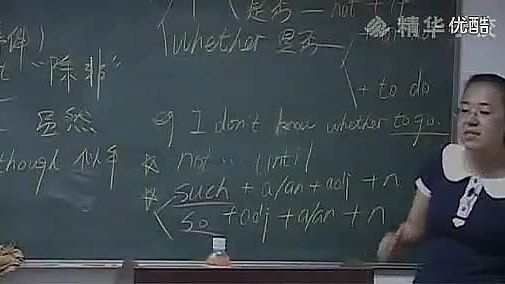 是否 — not + if
精华学校
优酷
whether 是否
"除非"
+ to do
虽然
eg I don't know whether to go.
though 似乎
not… until
such + a/an + adj + n
so + adj + a/an + n